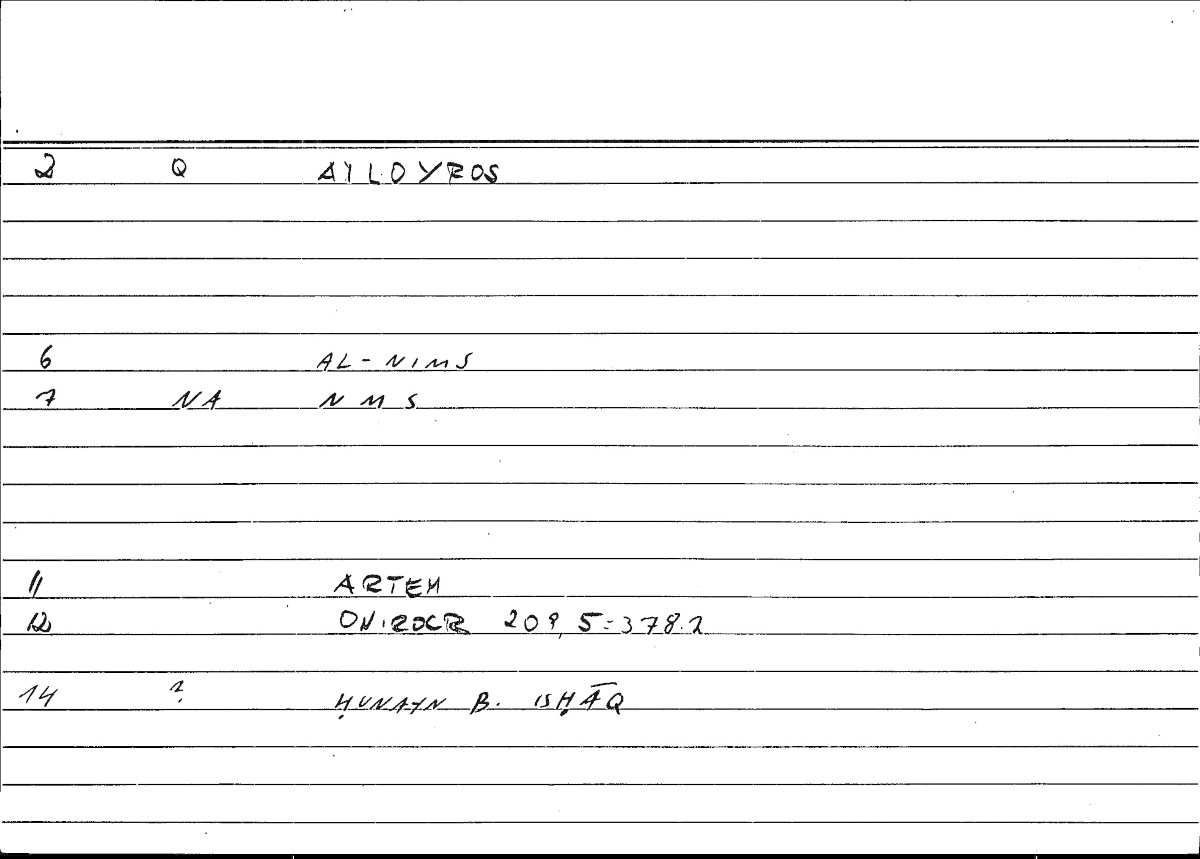 2 Q AILOYROS
6 AL-NIMS
7 NA NMS
11 ARTEM
12 ONIROCR 209,5=378.2
14 ? ḤUNAYN B. ISḤĀQ